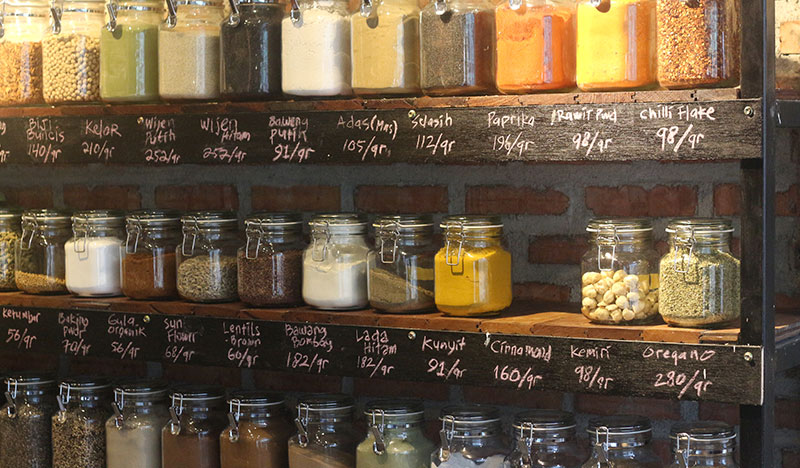 Biji Buncis 140/gr
Kelor 210/gr
Wijen Putih 252/gr
Wijen Hitam 252/gr
Bawang Putih 91/gr
Adas (Mas) 105/gr
Selasih 112/gr
Paprika 196/gr
Rawit Pwd 98/gr
Chilli Flake 98/gr
Ketumbar 56/gr
Baking Pwdr 70/gr
Gula Organik 56/gr
Sun Flower 68/gr
Lentils Brown 60/gr
Bawang Bombay 182/gr
Lada Hitam 182/gr
Kunyit 91/gr
Cinnamond 160/gr
Kemiri 98/gr
Oregano 280/gr